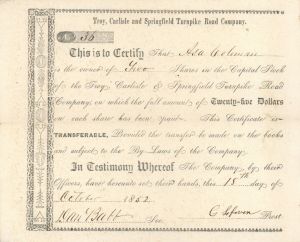 Troy, Carlisle and Springfield Turnpike Road Company.
No 36
This is to Certify That Asa Coleman
is the owner of Two Shares in the Capital Stock
of the Troy, Carlisle & Springfield Turnpike Road
Company, on which the full amount of Twenty-five Dollars
on each share has been paid. This Certificate is
TRANSFERABLE, Provided the transfer be made on the books
and subject to the By-Laws of the Company.
In Testimony Whereof The Company, by their
Officers, have hereunto set their hands, this 18th day of
October 1852
Dan Babb Sec. Prest